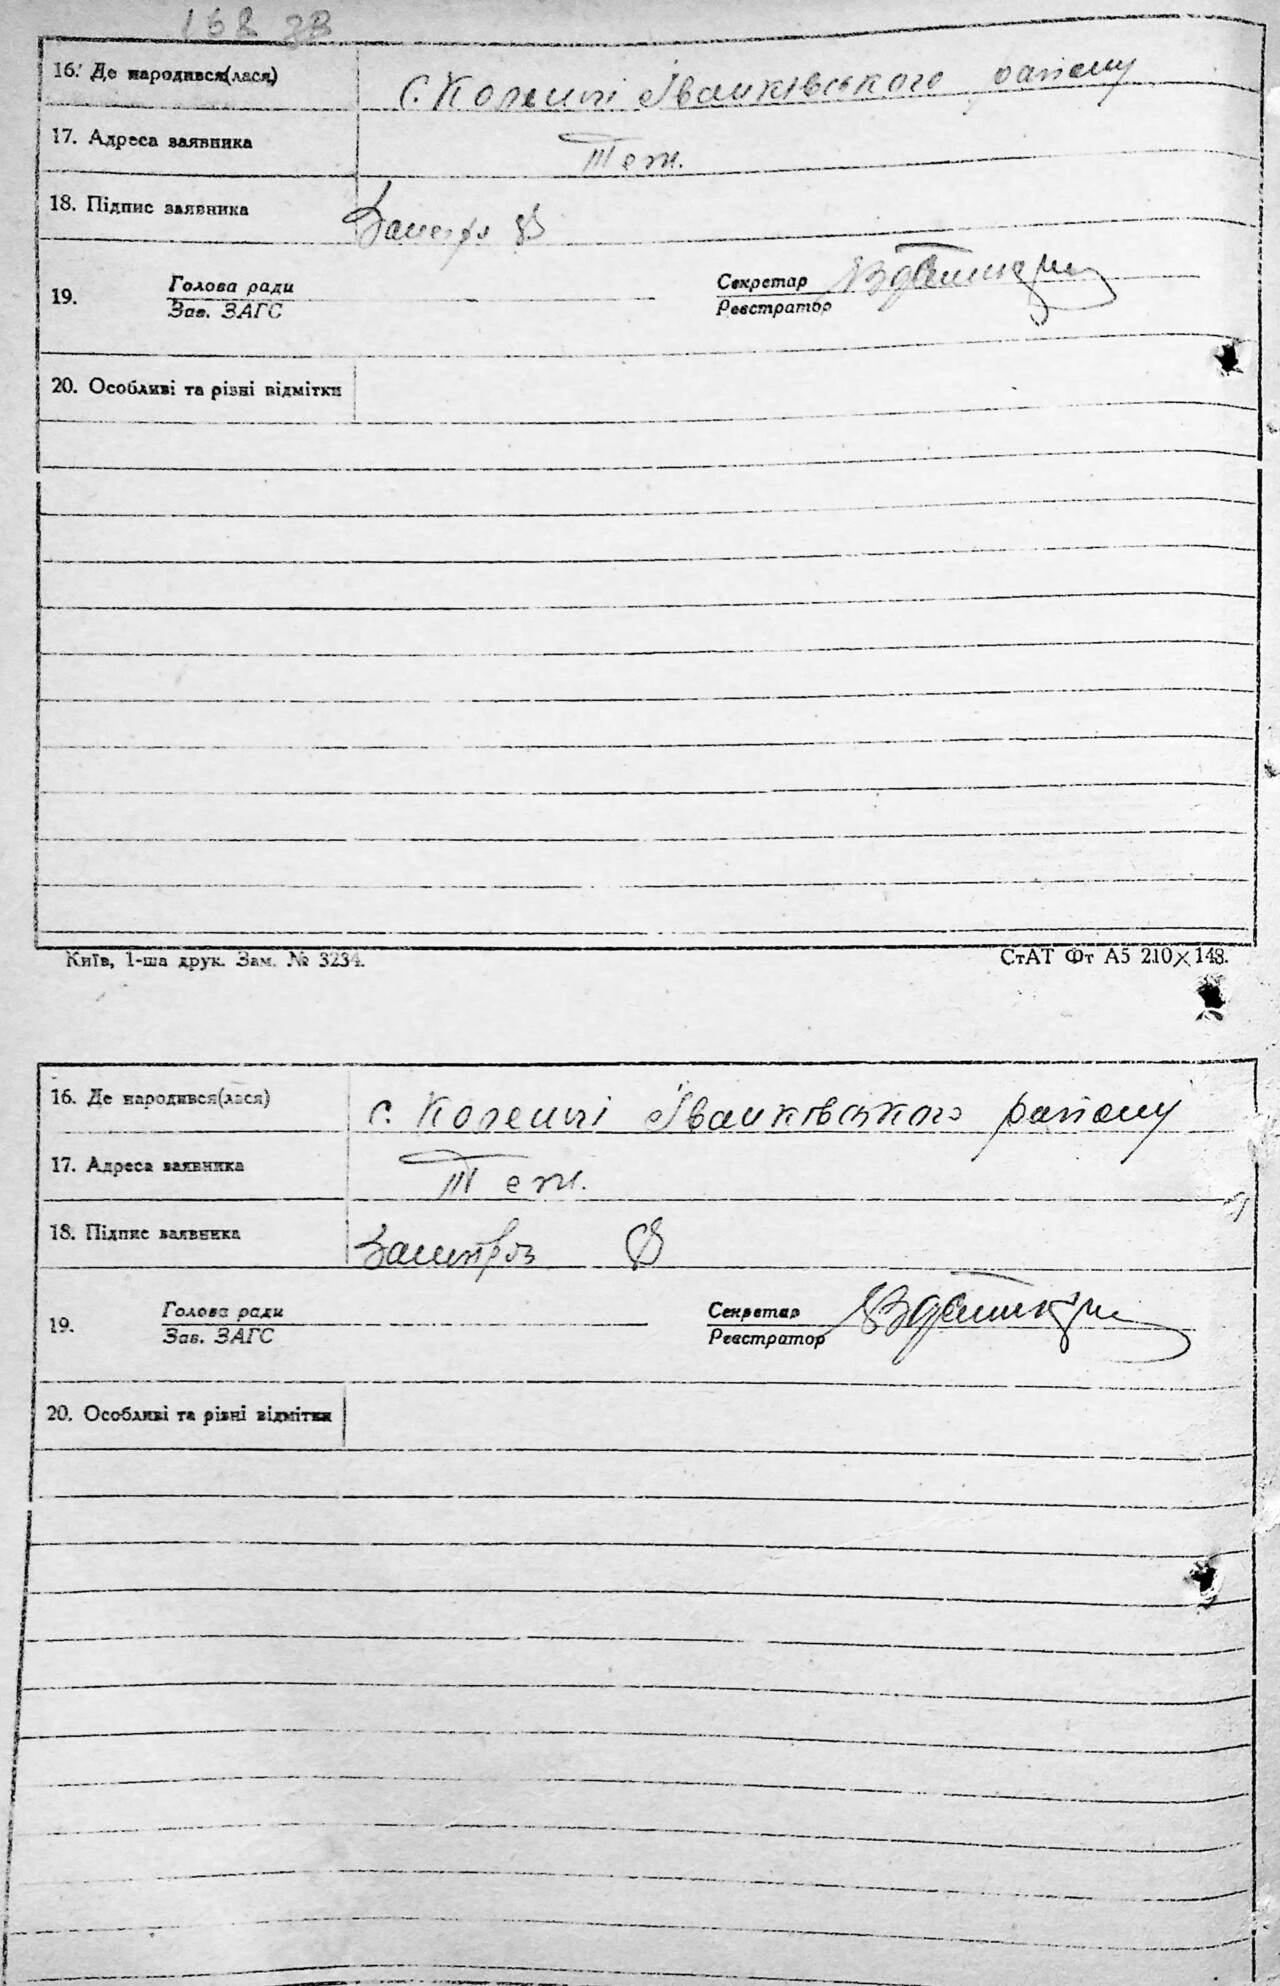 168 зв
16. Де народився(лася) с. Коленці Іванківського району
17. Адреса заявника Теж.
18. Підпис заявника
19. Голова ради Секретар
Зав. ЗАГС Реєстратор
20. Особливі та різні відмітки
Київ, 1-ша друк. Зам. № 3234. СтАТ Фт А5 210×148.
16. Де народився(лася) с. Коленці Іванківського району
17. Адреса заявника Теж.
18. Підпис заявника
19. Голова ради Секретар
Зав. ЗАГС Реєстратор
20. Особливі та різні відмітки